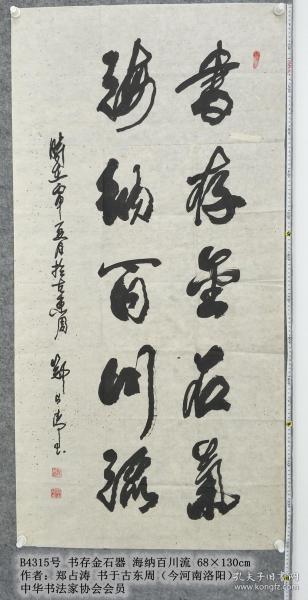 書存金石氣
海納百川流
時在申五月於古東周
鄭占濤書
B4315号 书存金石器 海纳百川流 68×130cm
作者：郑占涛 书于古东周（今河南洛阳）
中华书法家协会会员